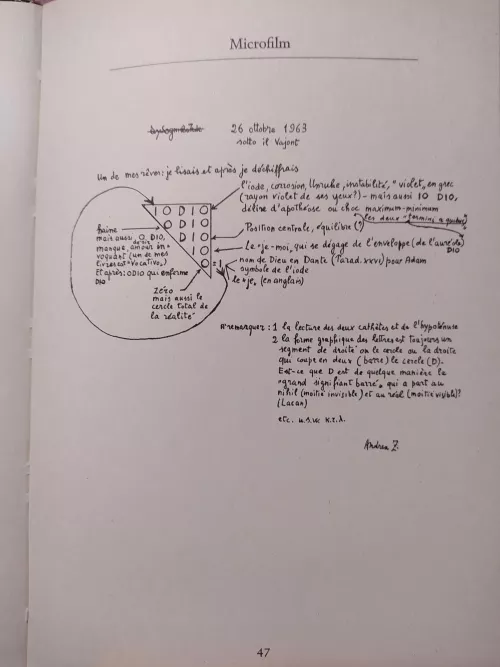 Microfilm
26 ottobre 1963
sotto il Vajont
Un de mes rêves: je lisais et après je déchiffrais
I O D I O
O D I O
D I O
I O
O = 1
l'iode, corrosion, Unruhe, instabilité, "violet" en grec
(rayon violet de ses yeux?) – mais aussi IO DIO,
délire d'apothéose ou choc maximum-minimum
les deux "termini a quibus"
Position centrale, équilibre (?)
Le "je-moi" qui se dégage de l'enveloppe (de l'auréole)
DIO
nom de Dieu en Dante (Parad. XXVI) pour Adam
symbole de l'iode
le "je" (en anglais)
haine
mais aussi O DIO,
manque, désir, amour in-
voquant (un de mes
livres est "Vocativo")
Et après: ODIO qui enferme
DIO
Zéro
mais aussi le
cercle total de
la réalité
A remarquer: 1 la lecture des deux cathètes et de l'hypoténuse
2 la forme graphique des lettres est toujours un
segment de droite ou le cercle ou la droite
qui coupe en deux (barre) le cercle (D).
Est-ce que D est de quelque manière le
"grand signifiant barré" qui a part au
nihil (moitié invisible) et au réal (moitié visible)?
(Lacan)
etc. u.s.w. κ.τ.λ.
Andrea Z.
47